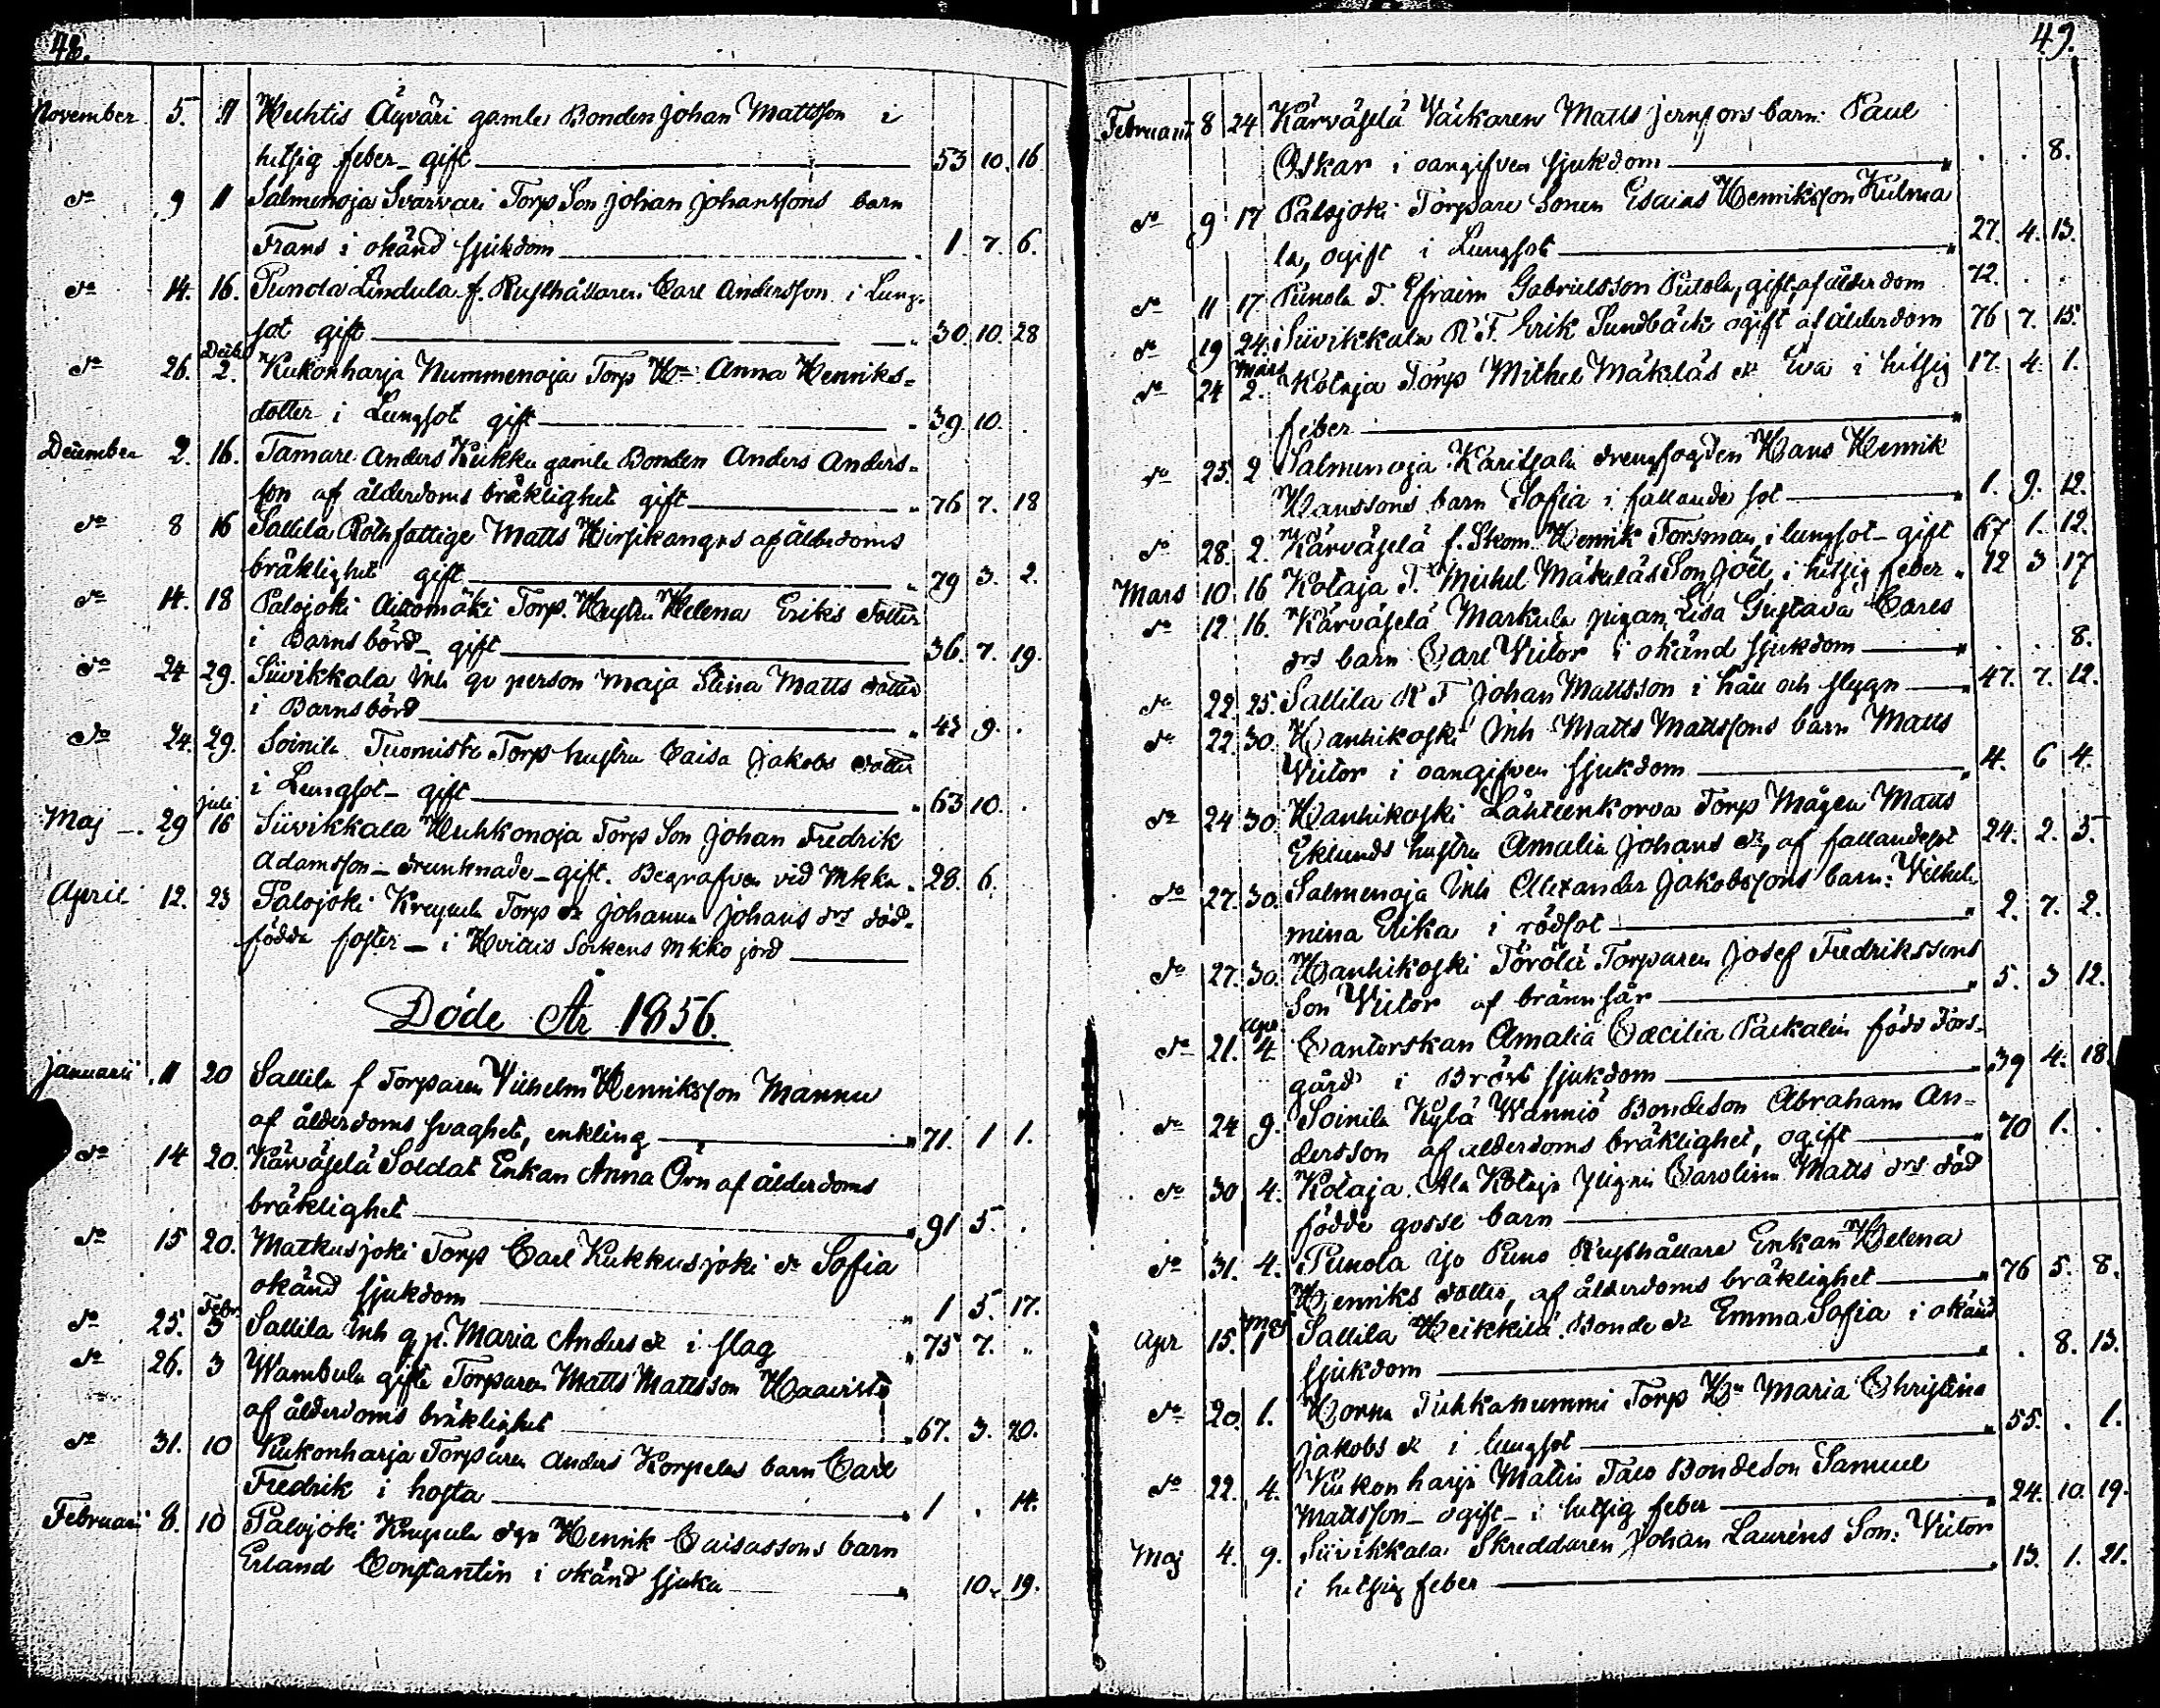 48.
November 5. 11 Huhtis Äyväri gamle Bonden Johan Mattsson i
hetsig feber - gift 53 10. 16
do 9 11 Salmenoja Svärvari Torp Son Johan Johanssons barn
Frans i okänd sjukdom 1. 7. 6.
do 14. 16. Punola Lindula f. Rusthållaren Carl Andersson i Lung-
sot gift 30. 10. 28
do 26. Decb 2. Kukonharja Nummenoja Torp Hu Anna Henriks-
dotter i Lungsot gift 39 10. .
December 2. 16. Tamare Anders Kukku gamle Bonden Anders Anders-
son af ålderdoms bräklighet gift 76 7. 18
do 8 16 Sallila Rothfattige Matts Hirsikangas af ålderdoms
bräklighet gift 79 3. 2.
do 14. 18 Palojoki Aittomäki Torp. Hustru Helena Eriks dotter
i Barnsbörd - gift 36. 7. 19.
do 24 29. Siivikkala Inh qv person Maja Stina Matts dotter
i Barnsbörd 42 9. .
do 24. 29. Soinila Tuomisto Torp hustru Caisa Jakobs dotter
i Lungsot - gift 63 10. .
Maj 29 juli 16 Siivikkala Huhkonoja Torp Son Johan Fredrik
Adamsson - drunknade - gift. Begrafven vid Mkka 28. 6.
April 12. 23 Palojoki Torp dr Johanna Johans drs död-
födda foster - i Hvittis Sockens Mkko jord
Döde År 1856.
Januarii 11 20 Sallila f Torparen Vilhelm Henriksson Mannu
af ålderdoms svaghet, enkling 71. 1 1.
do 14 20. Kärväselä Soldat Enkan Anna Örn af ålderdoms
bräklighet 91 5. .
do 15 20. Matkusjoki Torp Carl Kukkusjoki dr Sofia
okänd sjukdom 1 5. 17.
do 25. Febr 3 Sallila Inh q p. Maria Anders dr i slag 75 7. "
do 26. 3 Wambula gifte Torparen Matts Mattsson Haavisto
af ålderdoms bräklighet 67. 3. 20.
do 31. 10 Kukonharja Torparen Anders Korpelas barn Carl
Fredrik i hosta 1 . 14.
Februari 8. 10 Palojoki Henrik Caisassons barn
Erland Constantin i okänd sjuka 10. 19.
49.
Februarii 8 24 Kärväselä Väckaren Matts Jernfors barn Paul
Oskar i oangifven sjukdom . . 8.
do 9 17 Palojoki Torpare Sonen Esaias Henriksson Kulma
la, ogift i Lungsot 27. 4. 13.
do 11 17 Punola T. Efraim Gabrielsson Putola, gift, af ålderdom 72. . .
do 19 24. Siivikkala R.F. Erik Sundbäck ogift af ålderdom 76 7. 15.
do 24 Mars 2. Kotaja Torp Michel Mäkeläs dr Eva i hetsig 17. 4. 1.
feber
do 25. 2 Salmenoja Karitsala drengfogden Hans Henrik
Hanssons barn Sofia i fallande sot 1. 9. 12.
do 28. 2. Kärväselä f. Skom. Henrik Forsman, i lungsot - gift 67 1. 12.
Mars 10 16 Kotaja T. Michel Mäkeläs Son Joël, i hetsig feber 12 3 17
do 12. 16. Kärväselä Markula pigan Lisa Gustava Carls
drs barn Carl Victor i okänd sjukdom . . 8.
do 22. 25. Sallila R F Johan Mattsson i håll och stygn 47. 7. 12.
do 22. 30. Hanhikoski Inh Matts Mattssons barn Matts
Victor i oangifven sjukdom 4. 6 4.
do 24 30. Hanhikoski Lähteenkorva Torp Mågen Matts
Eklunds hustru Amalia Johans dr, af fallandesot 24. 2. 5.
do 27. 30. Salmenoja Inh Alexander Jakobssons barn: Vilhel-
mina Erika i rödsot 2. 7. 2.
do 27. 30. Hanhikoski Törölä Torparen Josef Fredrikssons
Son Victor af brännsår 5. 3 12.
do 21. Apr. 4. Cantorskan Amalia Cæcilia Päivkalin född Fors-
gård i Bröst sjukdom 39 4. 18.
do 24 9. Soinila Kylä Wanniö Bondeson Abraham An-
dersson af ålderdoms bräklighet, ogift 70 1. .
do 30 4. Kotaja Ala Kotaja Pigan Carolina Matts drs död
födde gosse barn
do 31. 4. Punola Yjo Puno Rusthållare Enkan Helena
Henriks dotter, af ålderdoms bräklighet 76 5. 8.
Apr 15. Maj 1 Sallila Heikkilä Bonde dr Emma Sofia i okänd
sjukdom . 8. 13.
do 20. 1. Horma Tuhkanummi Torp Hu Maria Christina
Jakobs dr i lungsot 55. . 1.
do 22. 4. Kukonharja Bondeson Samuel
Mattsson - ogift - i hetsig feber 24. 10. 19.
Maj 4. 9. Siivikkala Skreddaren Johan Laurens Son: Victor
i hetsig feber 13. 1. 21.